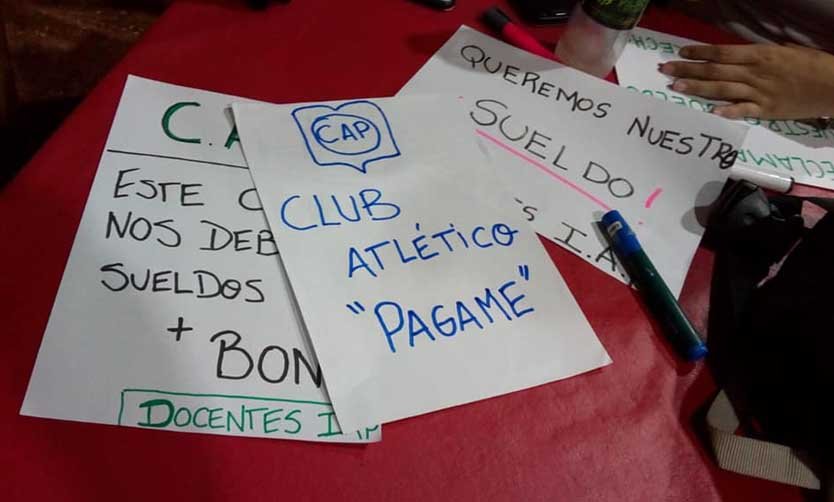 C.A
ESTE C
NOS DEB
SUELDOS
+ BON
DOCENTES I
CAP
CLUB
ATLÉTICO
"PAGAME"
QUEREMOS NUESTRO
SUELDO!
S I.A
RECLAMA